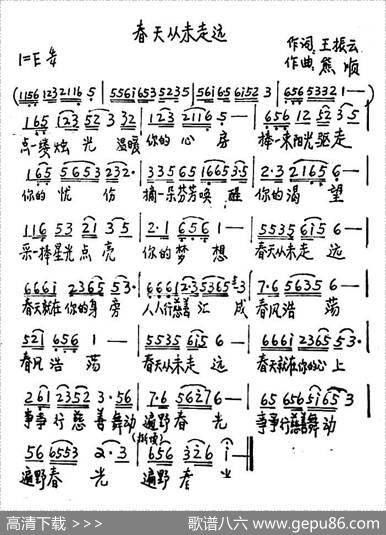 春天从未走远
作词 王振云
1=E
作曲 熊顺
(1156 1232116 5 | 556i653 5235 | 56i56 6i52 3 | 656 5332 1 —)
165 123 52 3 32 | 123 2116 5 — | 656 12 52 3 5
点一缕烛光 温暖 你的心房 捧一束阳光驱走
165 5653 232· | 335 65 1665 35 | 2·3 2165 6 —
你的忧伤 摘一朵芬芳唤醒 你的渴望
116 53 21 35 | 2·1 656 1 — | 5535 6i5 6 —
采一捧星光点亮 你的梦想 春天从未走远
6661 2365 53· | 6661 2·3 5365 | 7·6 5635 6 —
春天就在你的身旁 人人行慈善汇成 春风浩荡
521 656 1 — | 5535 6i5 6 — | 6661 2365 53·
春风浩荡 春天从未走远 春天就在你的心上
261 2352 3·56 | 7·6 5627 6 — | 65 656 5i65 3
事事行慈善舞动 遍野春光 事事行慈善舞动
56 6553 2·3 | 656 326 i —
遍野春光 遍野春
高清下载 >>>
歌谱八六 www.gepu86.com